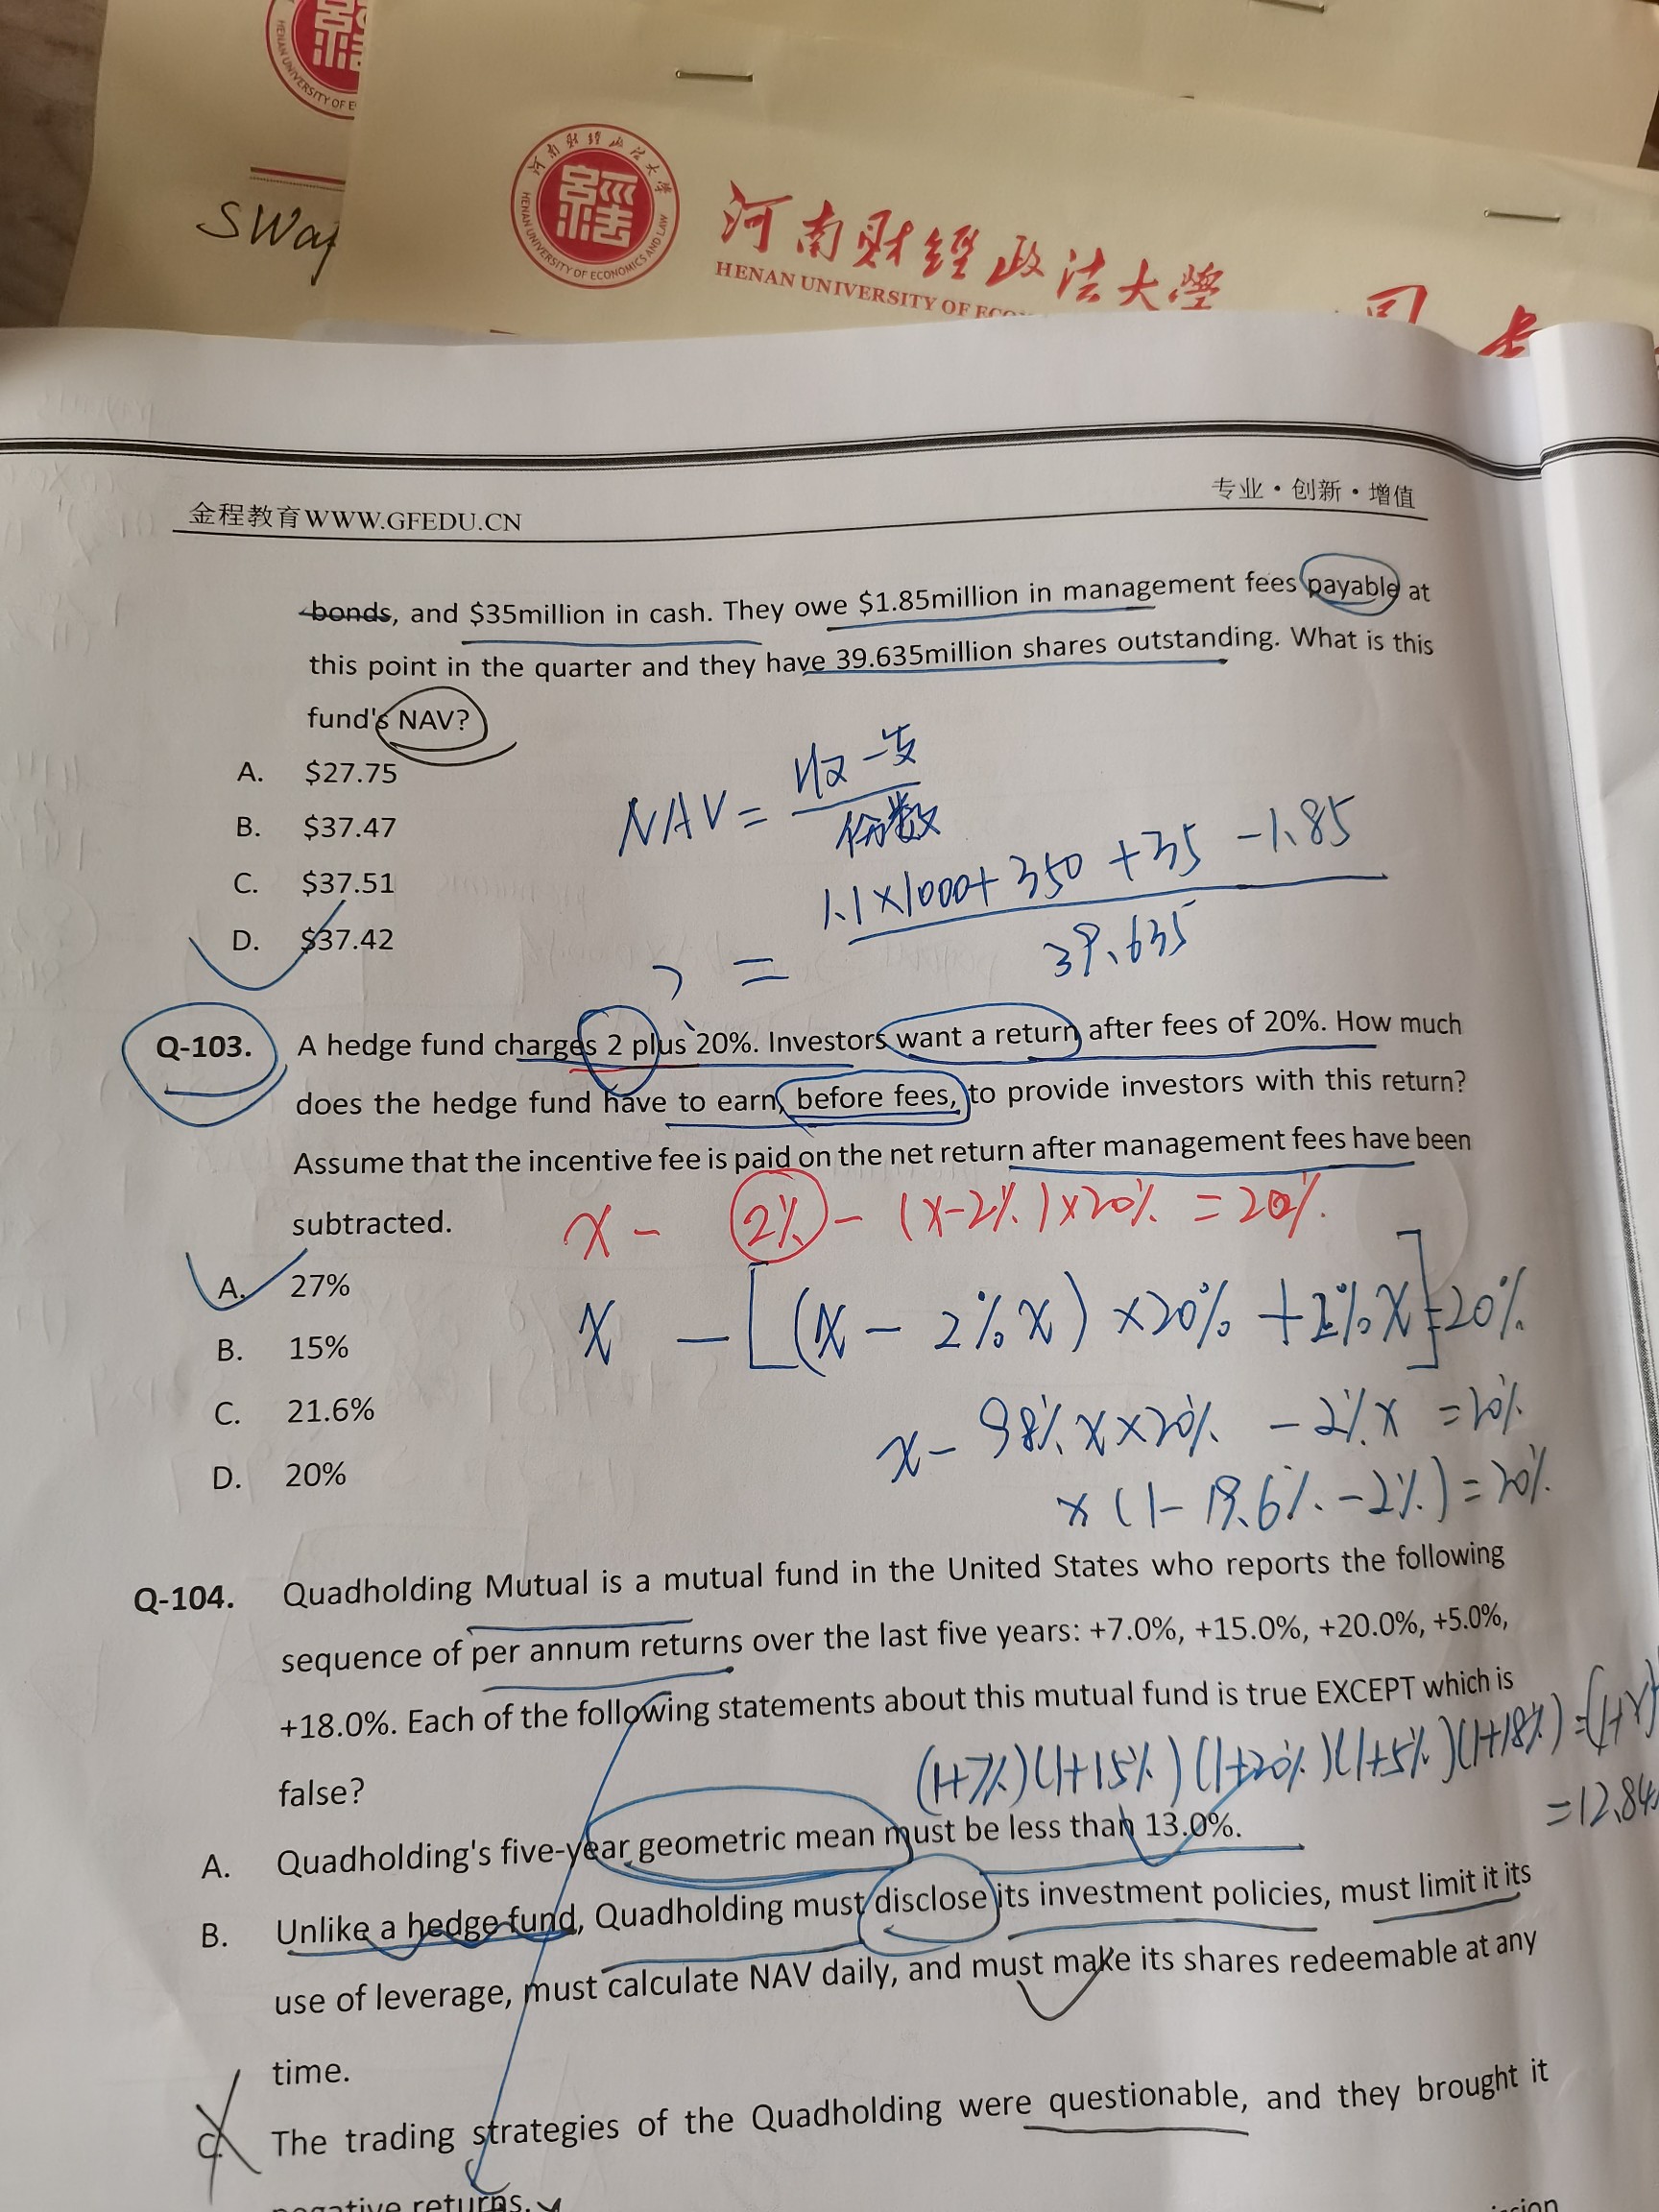 HENAN UNIVERSITY OF E
SWap
河南财经政法大学
HENAN UNIVERSITY OF ECONOMICS AND LAW
河南财经政法大学
HENAN UNIVERSITY OF ECO
金程教育WWW.GFEDU.CN
专业·创新·增值
bonds, and $35million in cash. They owe $1.85million in management fees payable at
this point in the quarter and they have 39.635million shares outstanding. What is this
fund's NAV?
A. $27.75
B. $37.47
C. $37.51
D. $37.42
NAV = 收-支
份数
= 1.1×1000+350+35-1.85
39.635
Q-103. A hedge fund charges 2 plus 20%. Investors want a return after fees of 20%. How much
does the hedge fund have to earn, before fees, to provide investors with this return?
Assume that the incentive fee is paid on the net return after management fees have been
subtracted.
x - 2% - (x-2%)×20% = 20%.
A. 27%
x - [(x - 2%x) ×20% + 2%x]=20%.
B. 15%
C. 21.6%
x - 98%x×20% - 2%x = 20%
D. 20%
x(1-19.6%-2%)=20%.
Q-104. Quadholding Mutual is a mutual fund in the United States who reports the following
sequence of per annum returns over the last five years: +7.0%, +15.0%, +20.0%, +5.0%,
+18.0%. Each of the following statements about this mutual fund is true EXCEPT which is
false?
(1+7%)(1+15%)(1+20%)(1+5%)(1+18%)=(1+x)
=12.84
A. Quadholding's five-year geometric mean must be less than 13.0%.
B. Unlike a hedge fund, Quadholding must disclose its investment policies, must limit it its
use of leverage, must calculate NAV daily, and must make its shares redeemable at any
time.
C. The trading strategies of the Quadholding were questionable, and they brought it
negative returns.